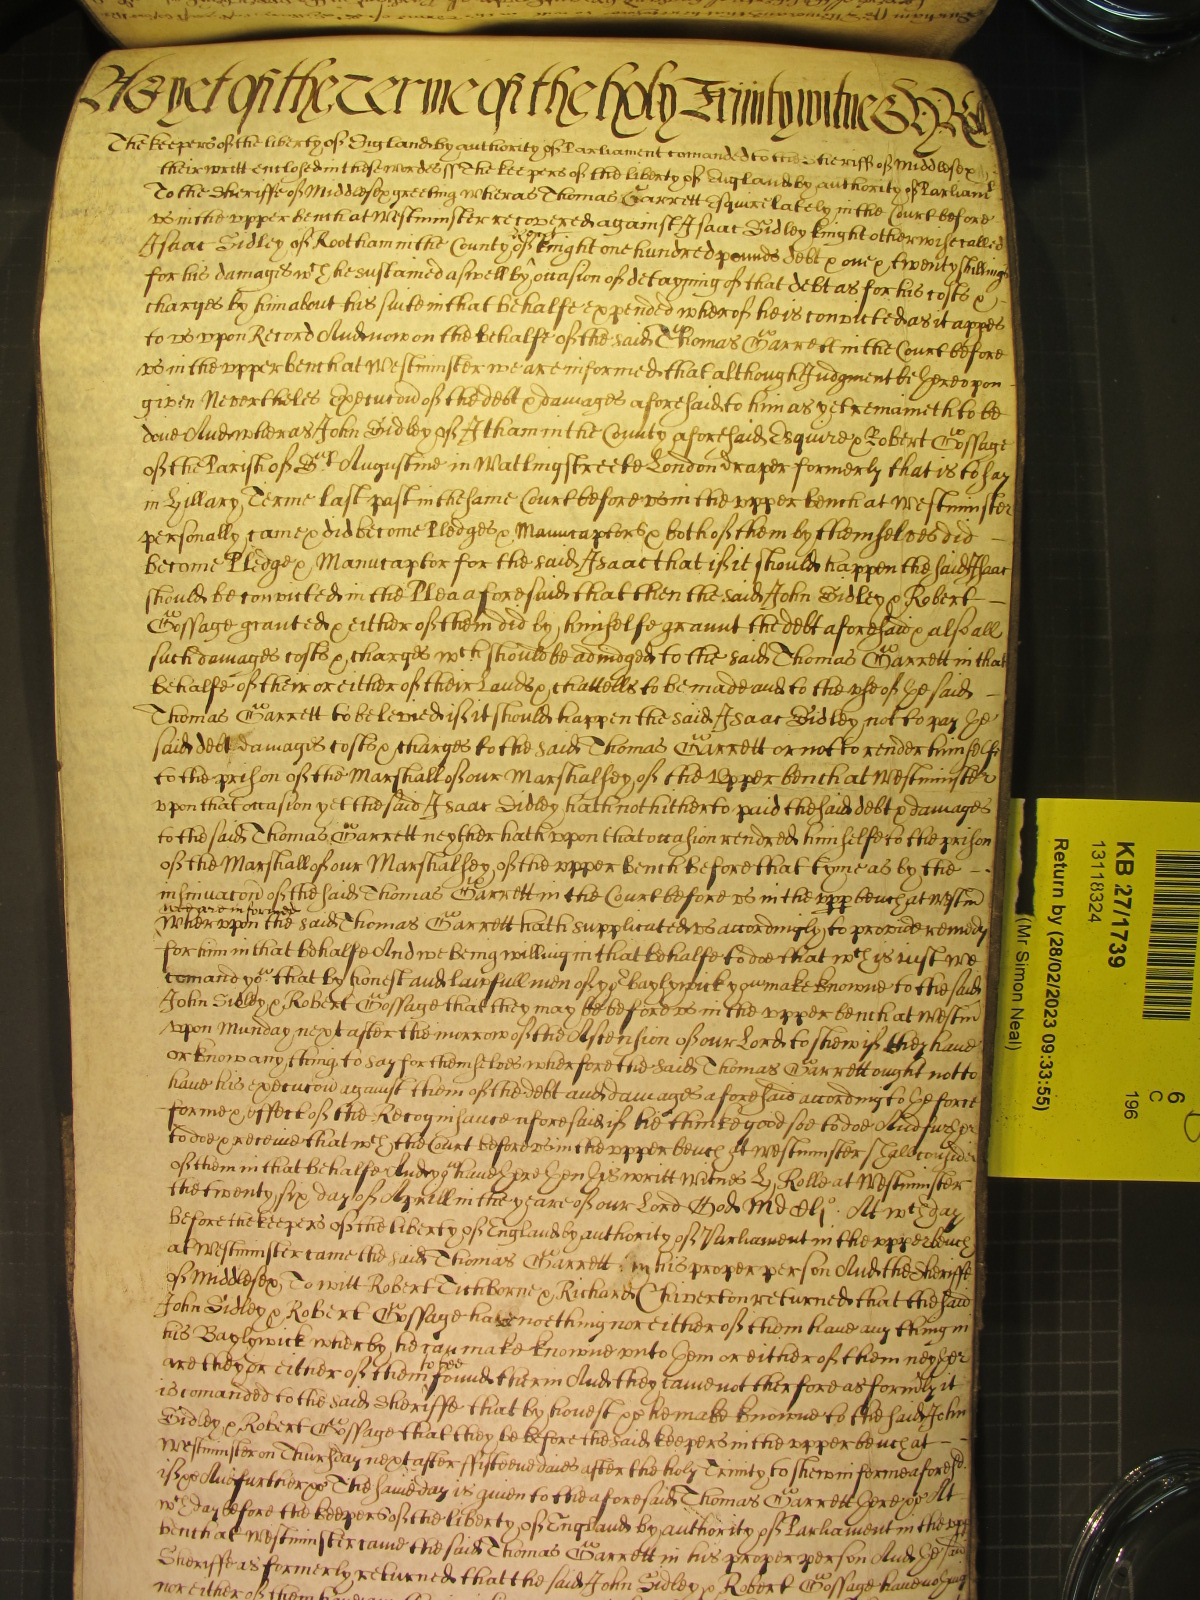 As yet of the Terme of the holy Trinity witnes H Rolle
The keepers of the liberty of England by authority of Parliament comanded to the Sheriff of Middlesex
their writt enclosed in these wordes ss The keepers of the liberty of England by authority of Parliamt
To the Sheriffe of Middlesex greeting wheras Thomas Garrett Esquire lately in the Court before
vs in the vpper bench at Westminster recovered against Isaac Sidley knight otherwise called
Isaac Sidley of Rootham in the County of Kent knight one hundred pounds debt & one & twenty shillings
for his damages wch he sustained aswell by occasion of detayning of that debt as for his costs &
charges by him about his suite in that behalfe expended wherof he is convicted as it appes
to vs vpon Record And now on the behalfe of the said Thomas Garrett in the Court before
vs in the vpper bench at Westminster we are informed that although Judgment be hereupon
given Nevertheles Execucon of the debt & damages aforesaid to him as yet remaineth to be
done And wheras John Sidley of Itham in the County aforesaid Esquire & Robert Gossage
of the Parish of St Augustine in Watlingstreete London draper formerly that is to say
in Hillary Terme last past in the same Court before vs in the vpper bench at Westminster
personally came & did become Pledges & Manucaptors & both of them by themselves did
become Pledge & Manucaptor for the said Isaac that if it should happen the said Isaac
should be convicted in the Plea aforesaid that then the said John Sidley & Robert
Gossage granted & either of them did by himselfe graunt the debt aforesaid & also all
such damages costs & charges wch should be adiudged to the said Thomas Garrett in that
behalfe of their or either of their Lands & chattells to be made and to the vse of the said
Thomas Garrett to be levied if it should happen the said Isaac Sidley not to pay the
said debt damages costs & charges to the said Thomas Garrett or not to render himselfe
to the prison of the Marshall of our Marshalsey of the Vpper bench at Westminster
vpon that occasion yet the said Isaac Sidley hath not hitherto paid the said debt & damages
to the said Thomas Garrett neyther hath vpon that occasion rendred himselfe to the prison
of the Marshall of our Marshalsey of the vpper bench before that tyme as by the
insinuacon of the said Thomas Garrett in the Court before vs in the vpp bench at Westm
we are informed
Wherupon the said Thomas Garrett hath supplicated vs accordingly to provide remedy
for him in that behalfe And we being willing in that behalfe to doe that wch is iust we
comand you that by honest and lawfull men of yr baylywick you make knowne to the said
John Sidley & Robert Gossage that they may be before vs in the vpper bench at Westm
vpon Munday next after the morrow of the Ascension of our Lord to shew if they have
or know any thing to say for themselves wherfore the said Thomas Garrett ought not to
have his execucon against them of the debt and damages aforesaid according to the force
forme & effect of the Recognisance aforesaid if he thinke good soe to doe And further
to doe & receive that wch the Court before vs in the vpper bench at Westminster shall consider
of them in that behalfe And you have there then this writt Witnes H Rolle at Westminster
the twenty six day of Aprill in the yeare of our Lord God MDCLI. At wch day
before the keepers of the liberty of England by authority of Parliament in the vpper bench
at Westminster came the said Thomas Garrett in his proper person And the Sheriffe
of Middlesex To witt Robert Tichborne & Richard Chiverton returned that the said
John Sidley & Robert Gossage have noething nor either of them have any thing in
his Baylywick wherby he can make knowne vnto them or either of them neyther
are they or either of them to bee found therin And they came not therfore as formerly it
is comanded to the said Sheriffe that by honest &c he make knowne to the said John
Sidley & Robert Gossage that they be before the said keepers in the vpper bench at
Westminster on Thursday next after fifteene daies after the holy Trinity to shew in forme aforesd
if &c And further &c The same day is given to the aforesaid Thomas Garrett there &c At
wch day before the keepers of the liberty of England by authority of Parliament in the vpp
bench at Westminster came the said Thomas Garrett in his proper person And the said
Sheriffe as formerly returned that the said John Sidley & Robert Gossage have nothing
nor either of them have
KB 27/1739
13118324
Return by (28/02/2023 09:33:55)
(Mr Simon Neal)
6
C
196